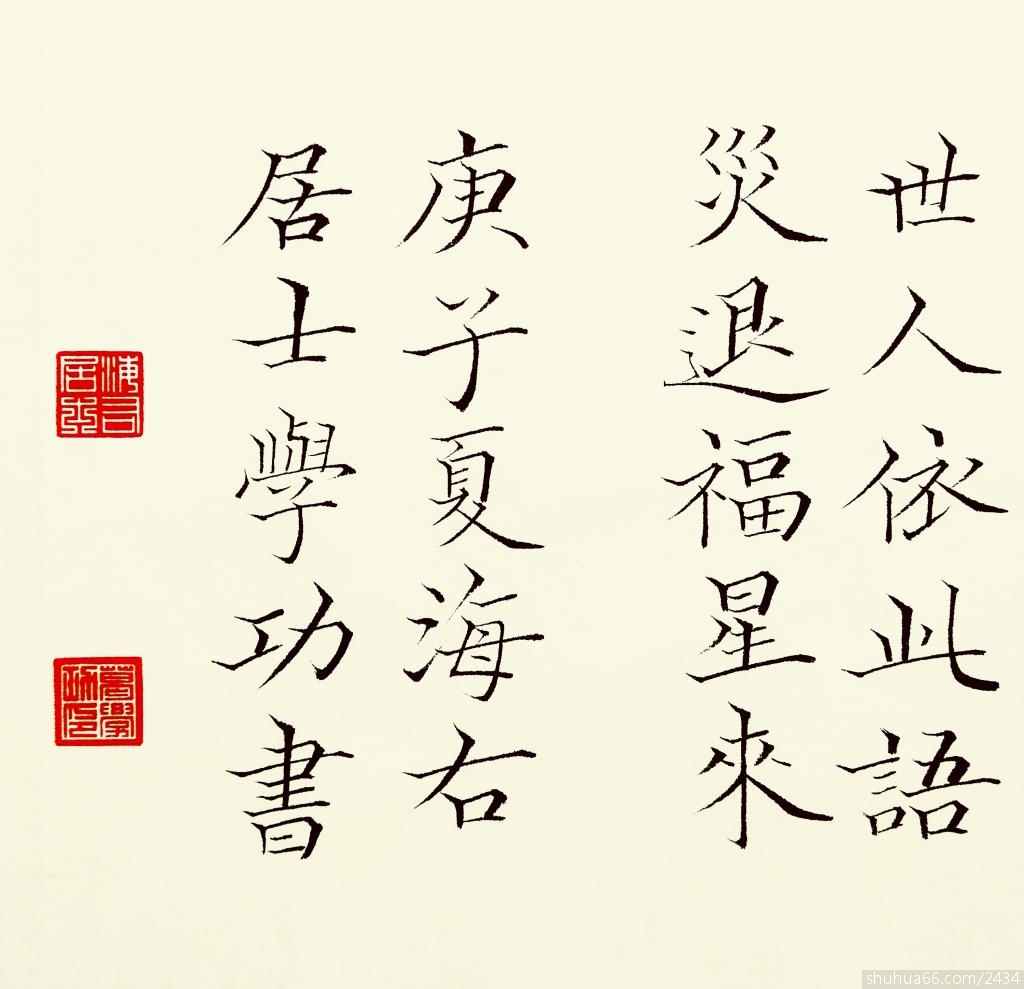 世人依此語
災退福星來
庚子夏海右
居士學功書
海右居士
葛學功印
shuhua66.com/2434